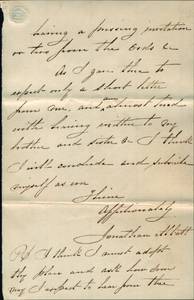 having a pressing invitation
or two from the Ords &c
As I gave thee to
expect only a short letter
from me, and almost tired
with having written to my
brother and sister &c I think
I will conclude and subscribe
myself as ever
Thine
Affectionately
Jonathan Abbatt
PS I think I must adopt
thy plan and ask how soon
may I expect to hear from thee